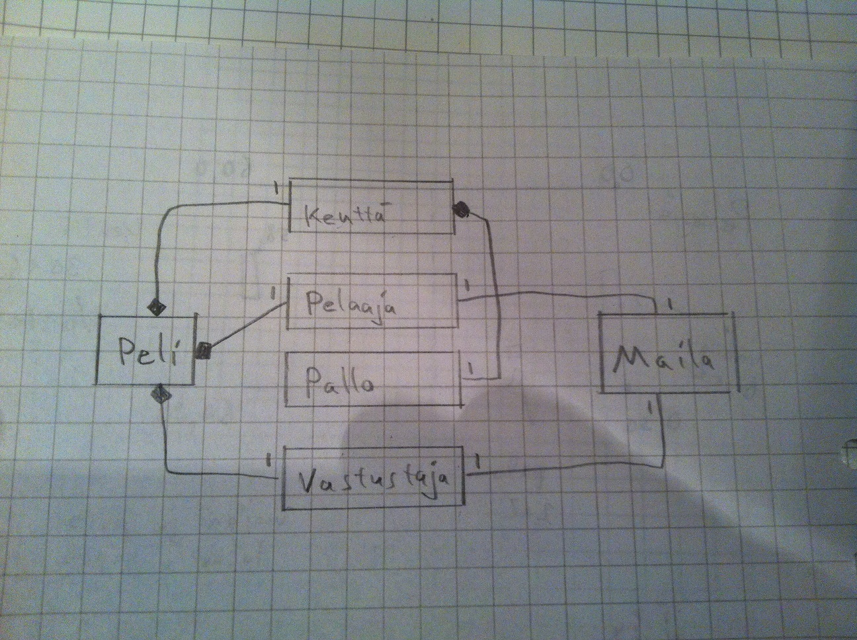 1
Kenttä
1
Pelaaja
1
1
Peli
Maila
Pallo
1
1
1
Vastustaja
1